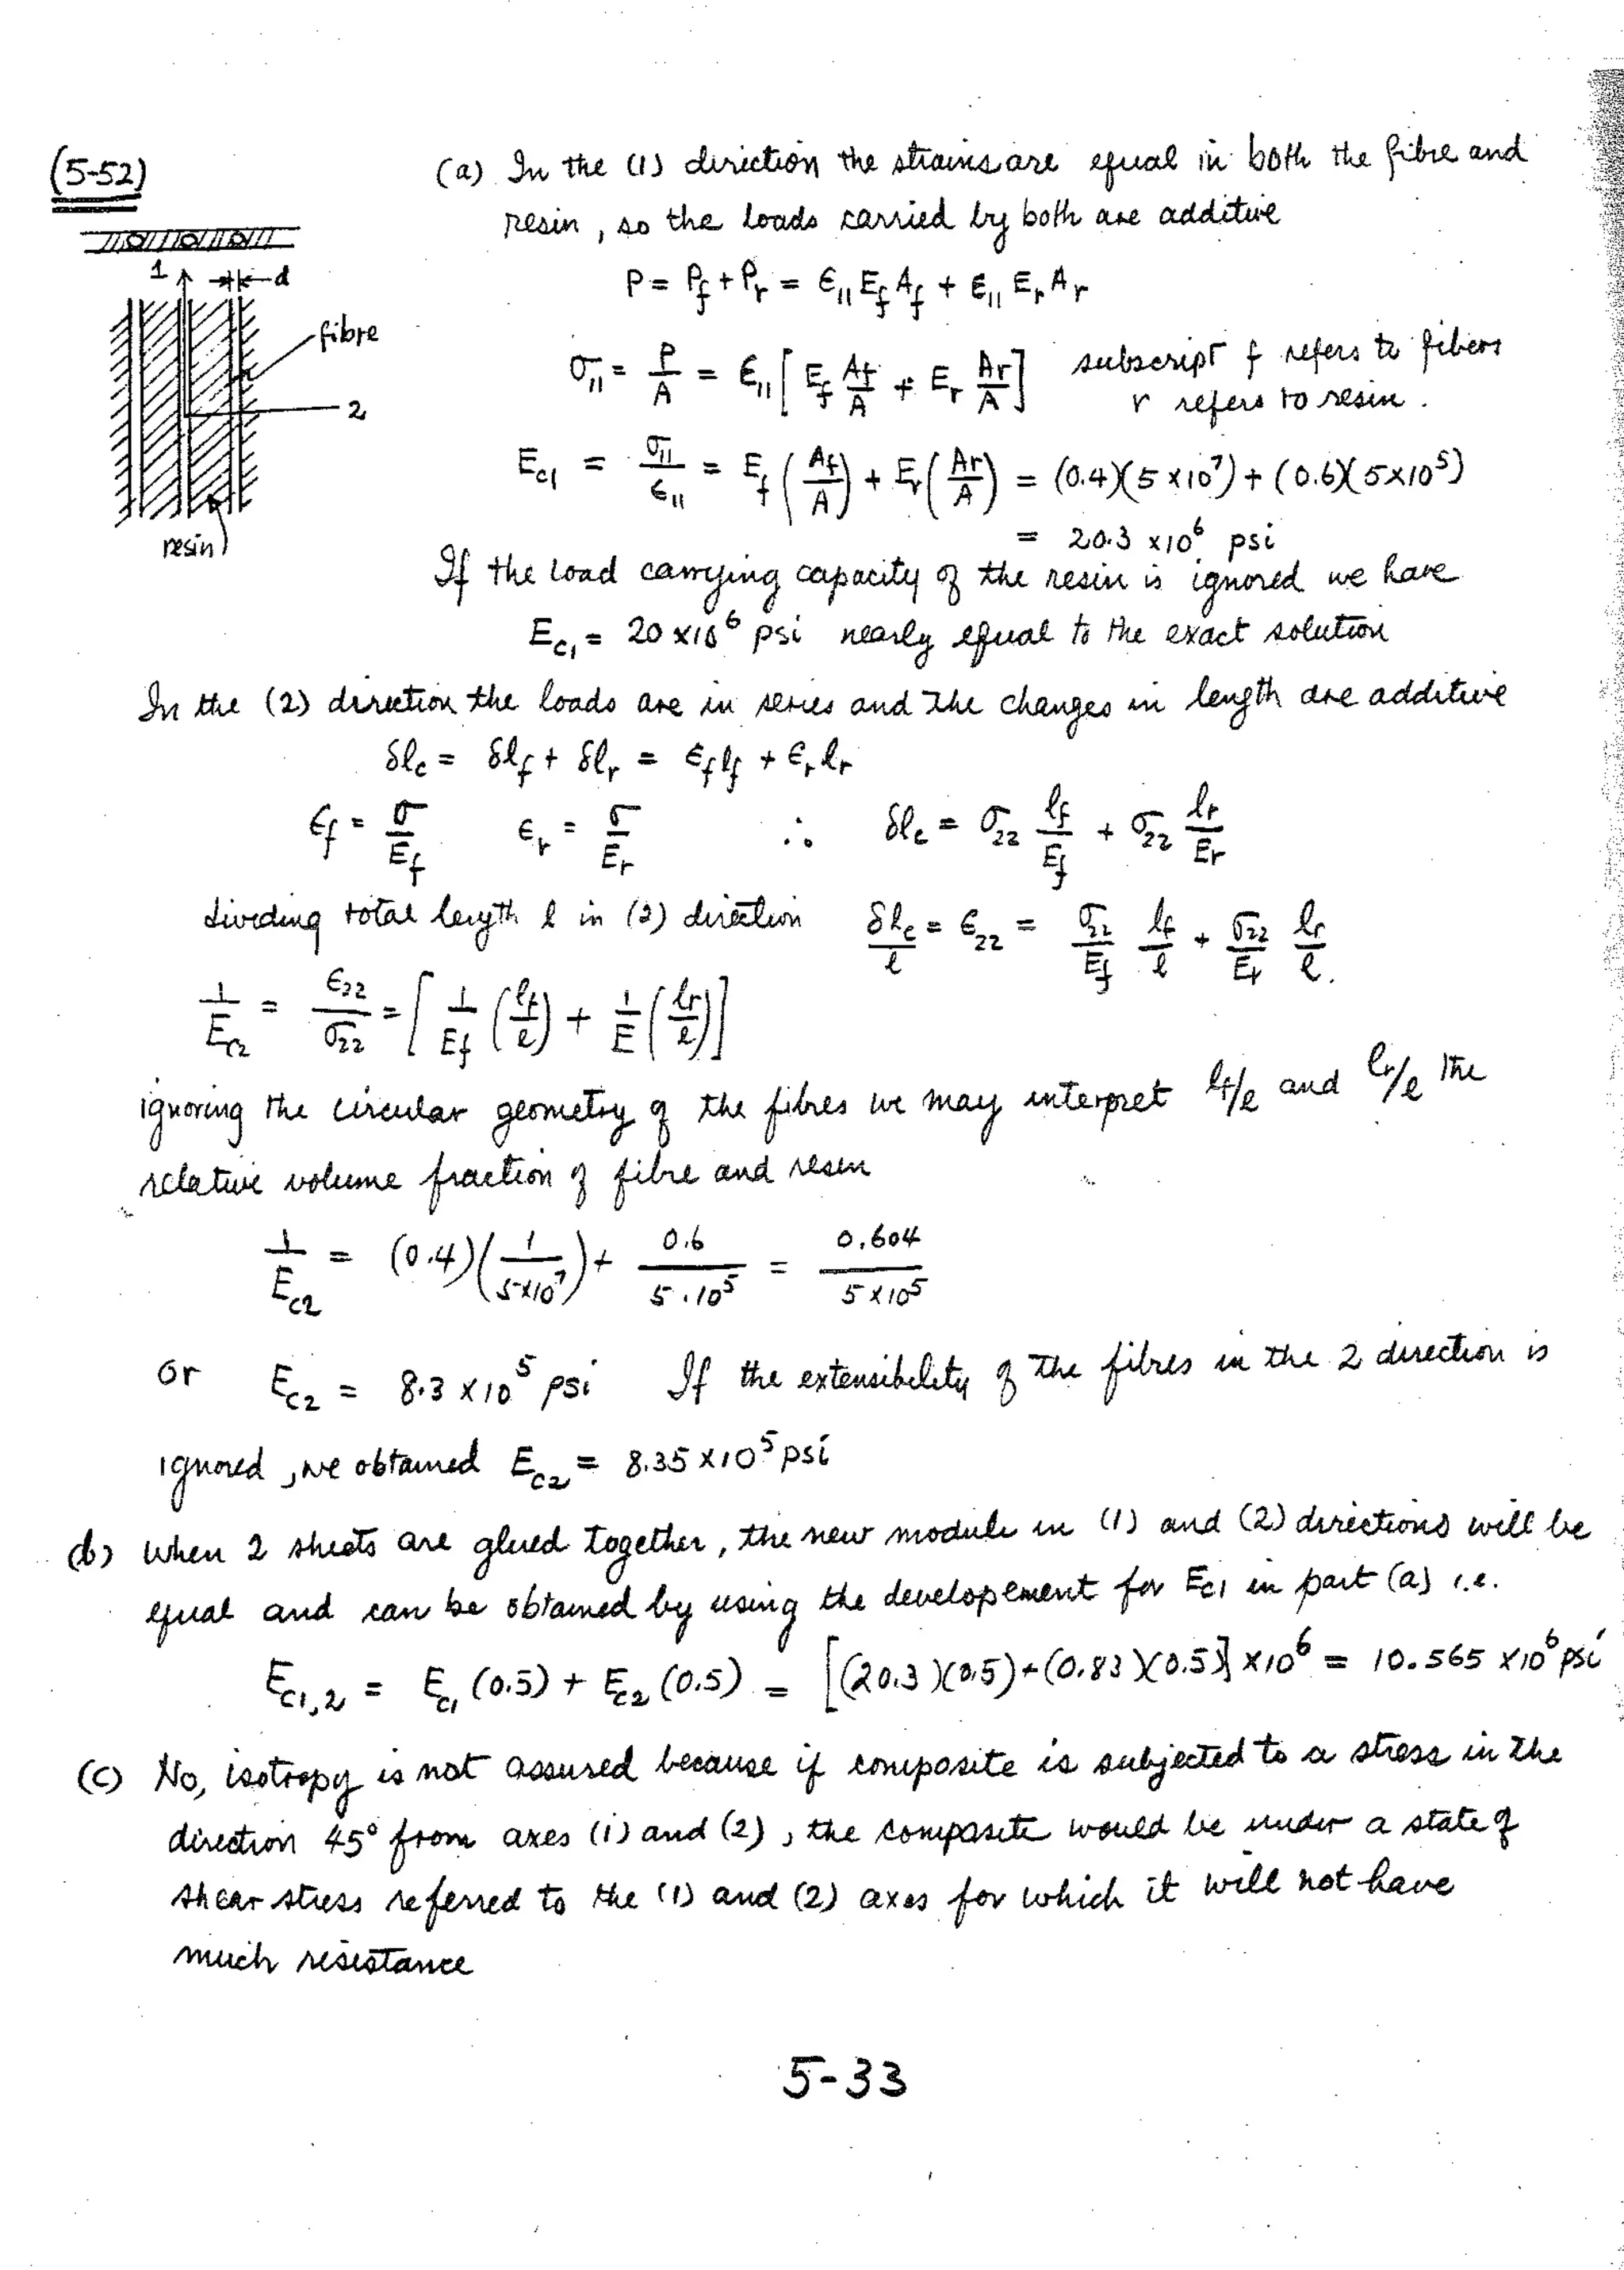 (5-52)
(a) In the (1) direction the strains are equal in both the fibre and
resin, so the loads carried by both are additive
1 d
P = Pf + Pr = ϵ11 Ef Af + ϵ11 Er Ar
fibre
σ11 = P/A = ϵ11 [Ef Af/A + Er Ar/A] subscript f refers to fibers
2
r refers to resin.
Ec1 = σ11/ϵ11 = Ef (Af/A) + Er (Ar/A) = (0.4)(5×10⁷) + (0.6)(5×10⁵)
= 20.3 ×10⁶ psi
resin
If the load carrying capacity of the resin is ignored we have
Ec1 = 20 ×10⁶ psi nearly equal to the exact solution
In the (2) direction the loads are in series and the changes in length are additive
δlc = δlf + δlr = ϵf lf + ϵr lr
ϵf = σ/Ef ϵr = σ/Er ∴ δlc = σ22 lf/Ef + σ22 lr/Er
dividing total length l in (2) direction δlc/l = ϵ22 = σ22/Ef lf/l + σ22/Er lr/l.
1/Ec2 = ϵ22/σ22 = [1/Ef (lf/l) + 1/E (lr/l)]
ignoring the circular geometry of the fibres we may interpret lf/l and lr/l the
relative volume fraction of fibre and resin
1/Ec2 = (0.4)(1/5×10⁷) + 0.6/5.10⁵ = 0.604/5×10⁵
or Ec2 = 8.3 ×10⁵ psi If the extensibility of the fibres in the 2 direction is
ignored, we obtained Ec2 = 8.35 ×10⁵ psi
(b) When 2 sheets are glued together, the new moduli in (1) and (2) directions will be
equal and can be obtained by using the developement for Ec1 in part (a) i.e.
Ec1,2 = Ec1 (0.5) + Ec2 (0.5) = [(20.3)(0.5)+(0.83)(0.5)] ×10⁶ = 10.565 ×10⁶ psi
(c) No, isotropy is not assured because if composite is subjected to a stress in the
direction 45° from axes (1) and (2), the composite would be under a state of
shear stress referred to the (1) and (2) axes for which it will not have
much resistance
5-33